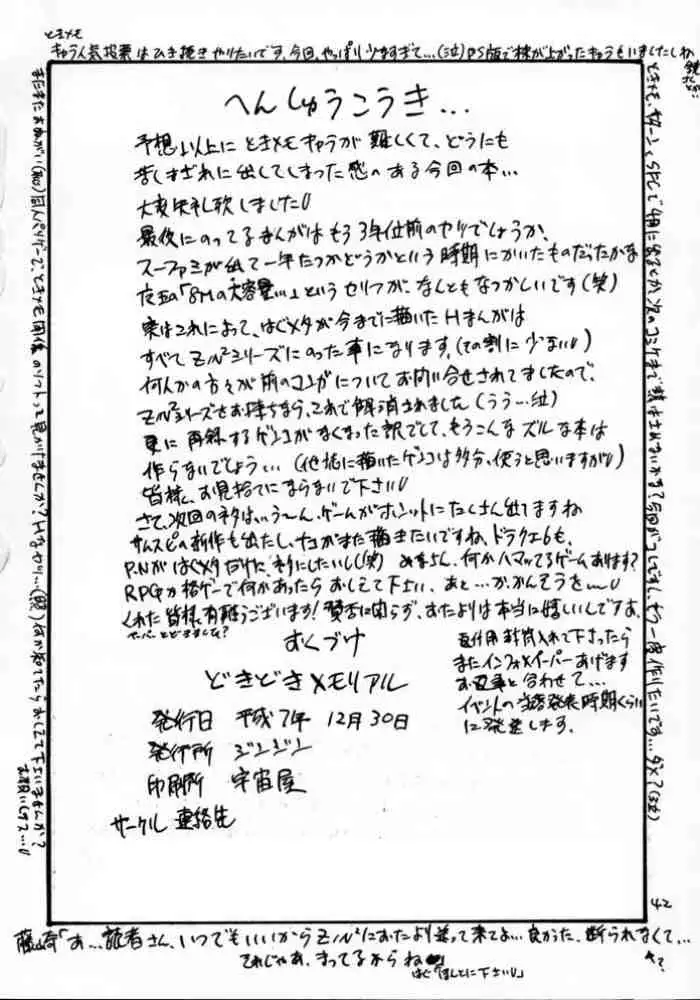 ときメモ
キャラ人気投票はひき続きやりたいです。今回、やっぱり少なすぎて…(泣)PS版で株が上がったキャラもいましたしね
へんしゅうこうき…
予想以上にときメモキャラが難しくて、どうにも
苦しまぎれに出してしまった感のある今回の本…
大変失礼致しました
最後にのってるまんがはもう3年位前のヤツでしょうか、
スーファミが出て一年たつかどうかという時期にかいたものだったかな
「8Mの大容量…」というセリフが、なんともなつかしいです(笑)
実はこれによって、はじメタが今までに描いたHまんがは
すべてZルシリーズにのった事になります。(その割に少ない)
何人かの方々が前のコレがについてお問い合せされてましたので、
シリーズをお持ちなら、これで解消されました(うう…泣)
更に再録するゲンコがなくなった訳でして、もうこんなズルな本は
作らないでしょう…(他誌に描いたゲンコは多分、使うと思いますが)
皆様、お見捨てにならないで下さい
さて、次回のネタは…う～ん、ゲームがホントにたくさん出てますね
サムスピの新作も出たし、ナコがまた描きたいですね、ドラクエ6も、
P.Nがはぐメタだけに、ネタにしたいし(笑) みなさん、何かハマッてるゲームあります?
RPGや格ゲーで何かあったらおしえて下さい、あと…か、かんそうを…
くれた皆様、有難うございます!賛否に関らず、おたよりは本当に嬉しいんですよ、
ペーパーとどきました?
おくづけ
どきどきメモリアル
発行日 平成7年 12月30日
発行所 ジンジン
印刷所 宇宙屋
サークル 連絡先
返信用封筒入れて下さったら
またインフォペーパーあげます
お返事と合わせて…
イベントの当落発表時期くらい
に発送します。
ときメモ、サターンとSFCで4月に出るとか、次のコミケまで熱は冷めないかな?今回がコレですし、もう一度作りたいです…ダメ?(泣)
またまたおねがい同人ベリゲーで、ときメモ関係のソフトって見かけませんか?Hなヤツ…(照)何か知ってたらおしえて下さいませんか?
お願いします…
42
藤崎「あ…読者さん、いつでもいいからZルにおたより送って来てよ…良かった、断られなくて…
それじゃあ、まってるからね
はぐ「ほんとに下さい」